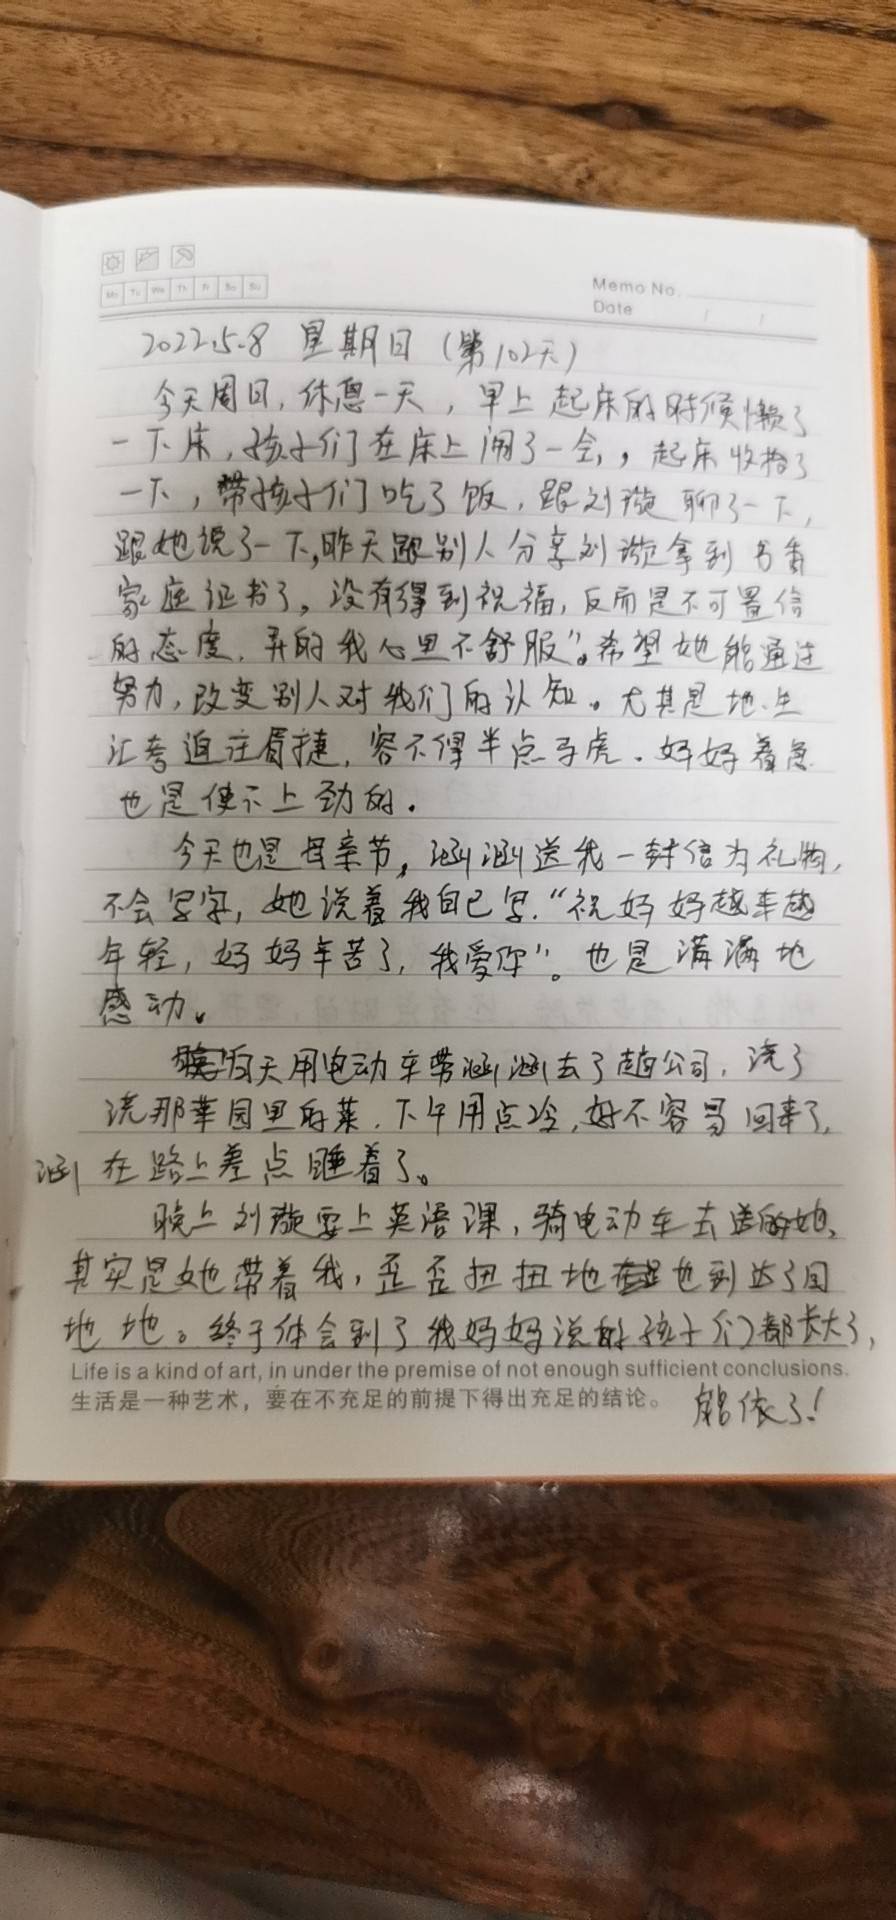 Mo Tu We Th Fr Sa Su
Memo No.
Date / /
2022.5.8 星期日（第102天）
今天周日，休息一天，早上起床的时候懒了
一下床，孩子们在床上闹了一会，，起床收拾了
一下，带孩子们吃了饭，跟刘璇聊了一下，
跟她说了一下，昨天跟别人分享刘璇拿到书香
家庭证书了，没有得到祝福，反而是不可置信
的态度，弄的我心里不舒服”。希望她能通过
努力，改变别人对我们的认知。尤其是地.生
汇考迫在眉捷，容不得半点马虎．妈妈着急
也是使不上劲的．
今天也是母亲节，涵涵送我一封信为礼物，
不会写字，她说着我自己写．“祝妈妈越来越
年轻，妈妈辛苦了，我爱你”。也是满满地
感动。
白天用电动车带涵涵去了趟公司，浇了
浇那菜园里的菜．下午用点冷，好不容易回来了，
涵在路上差点睡着了。
晚上刘璇要上英语课，骑电动车去送的她，
其实是她带着我，歪歪扭扭地也到达了目
地地。终于体会到了我妈妈说的孩子们都长大了，
能依了！
Life is a kind of art, in under the premise of not enough sufficient conclusions.
生活是一种艺术，要在不充足的前提下得出充足的结论。